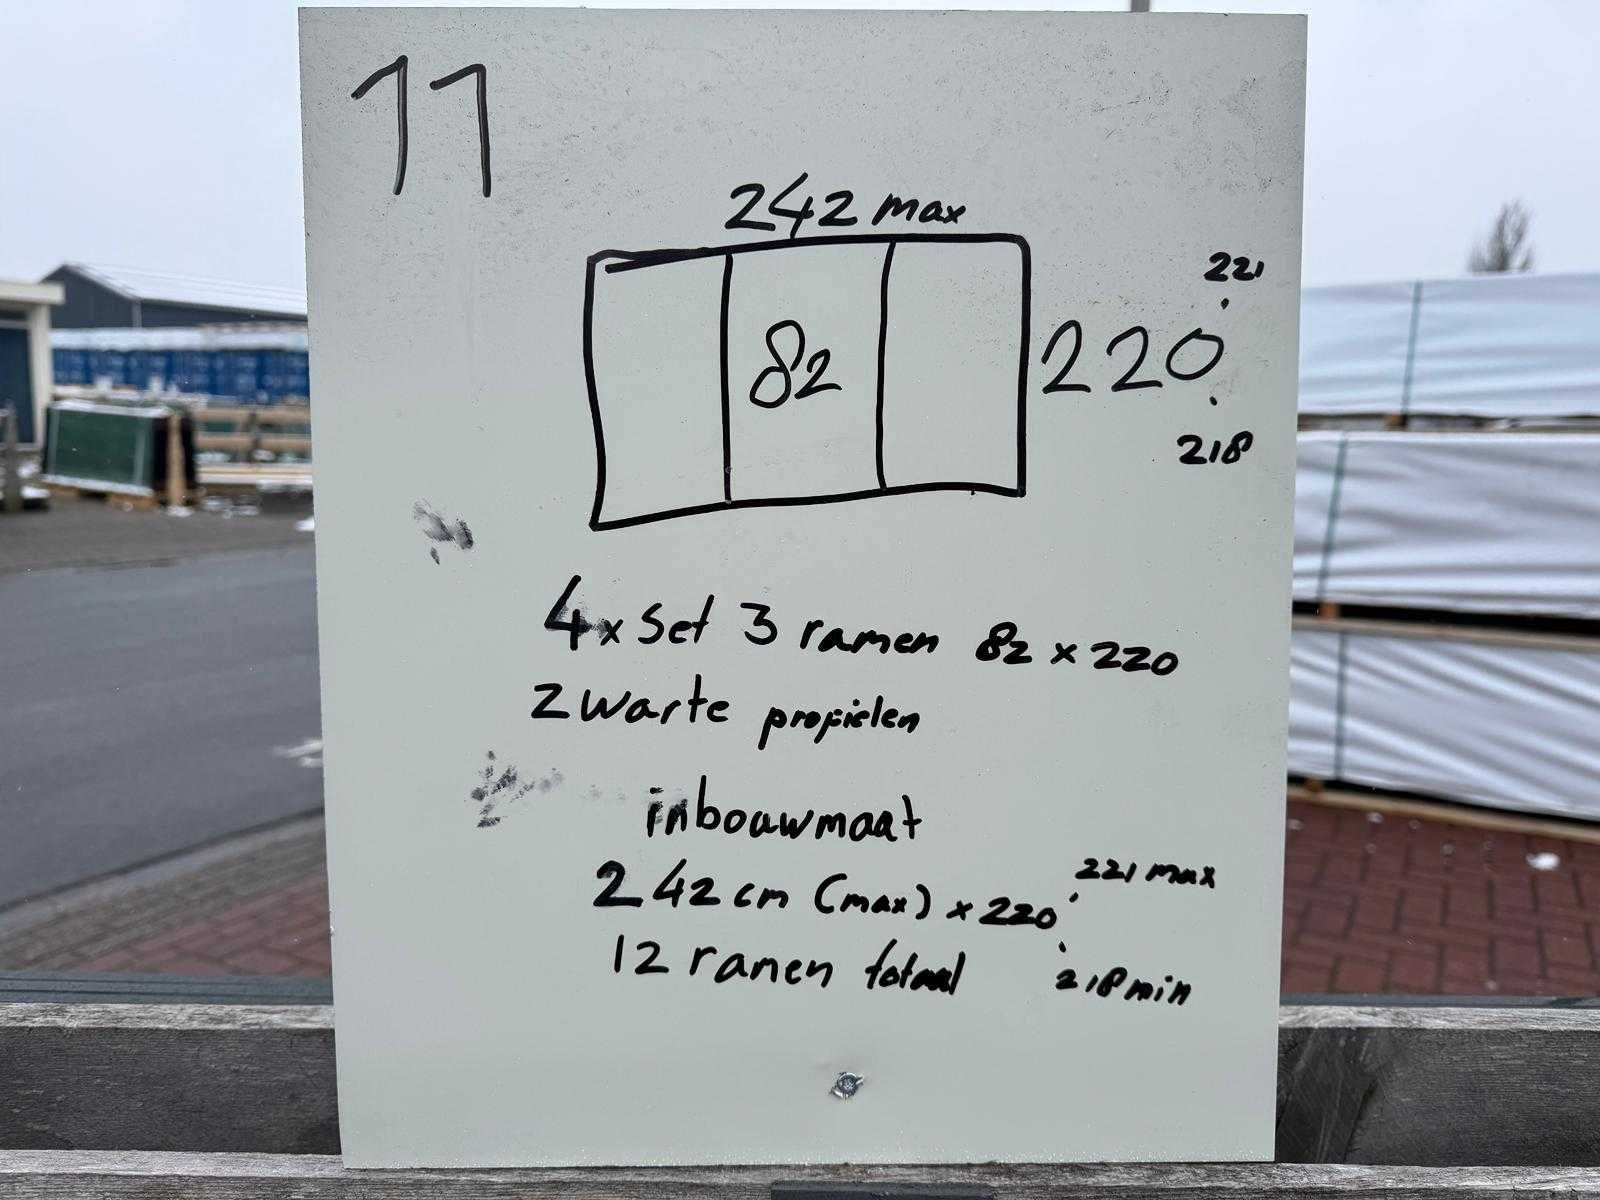 11
242 max
221
82
220
218
4x Set 3 ramen 82 x 220
Zwarte profielen
inbouwmaat
221 max
242 cm (max) x 220
12 ramen totaal
218 min